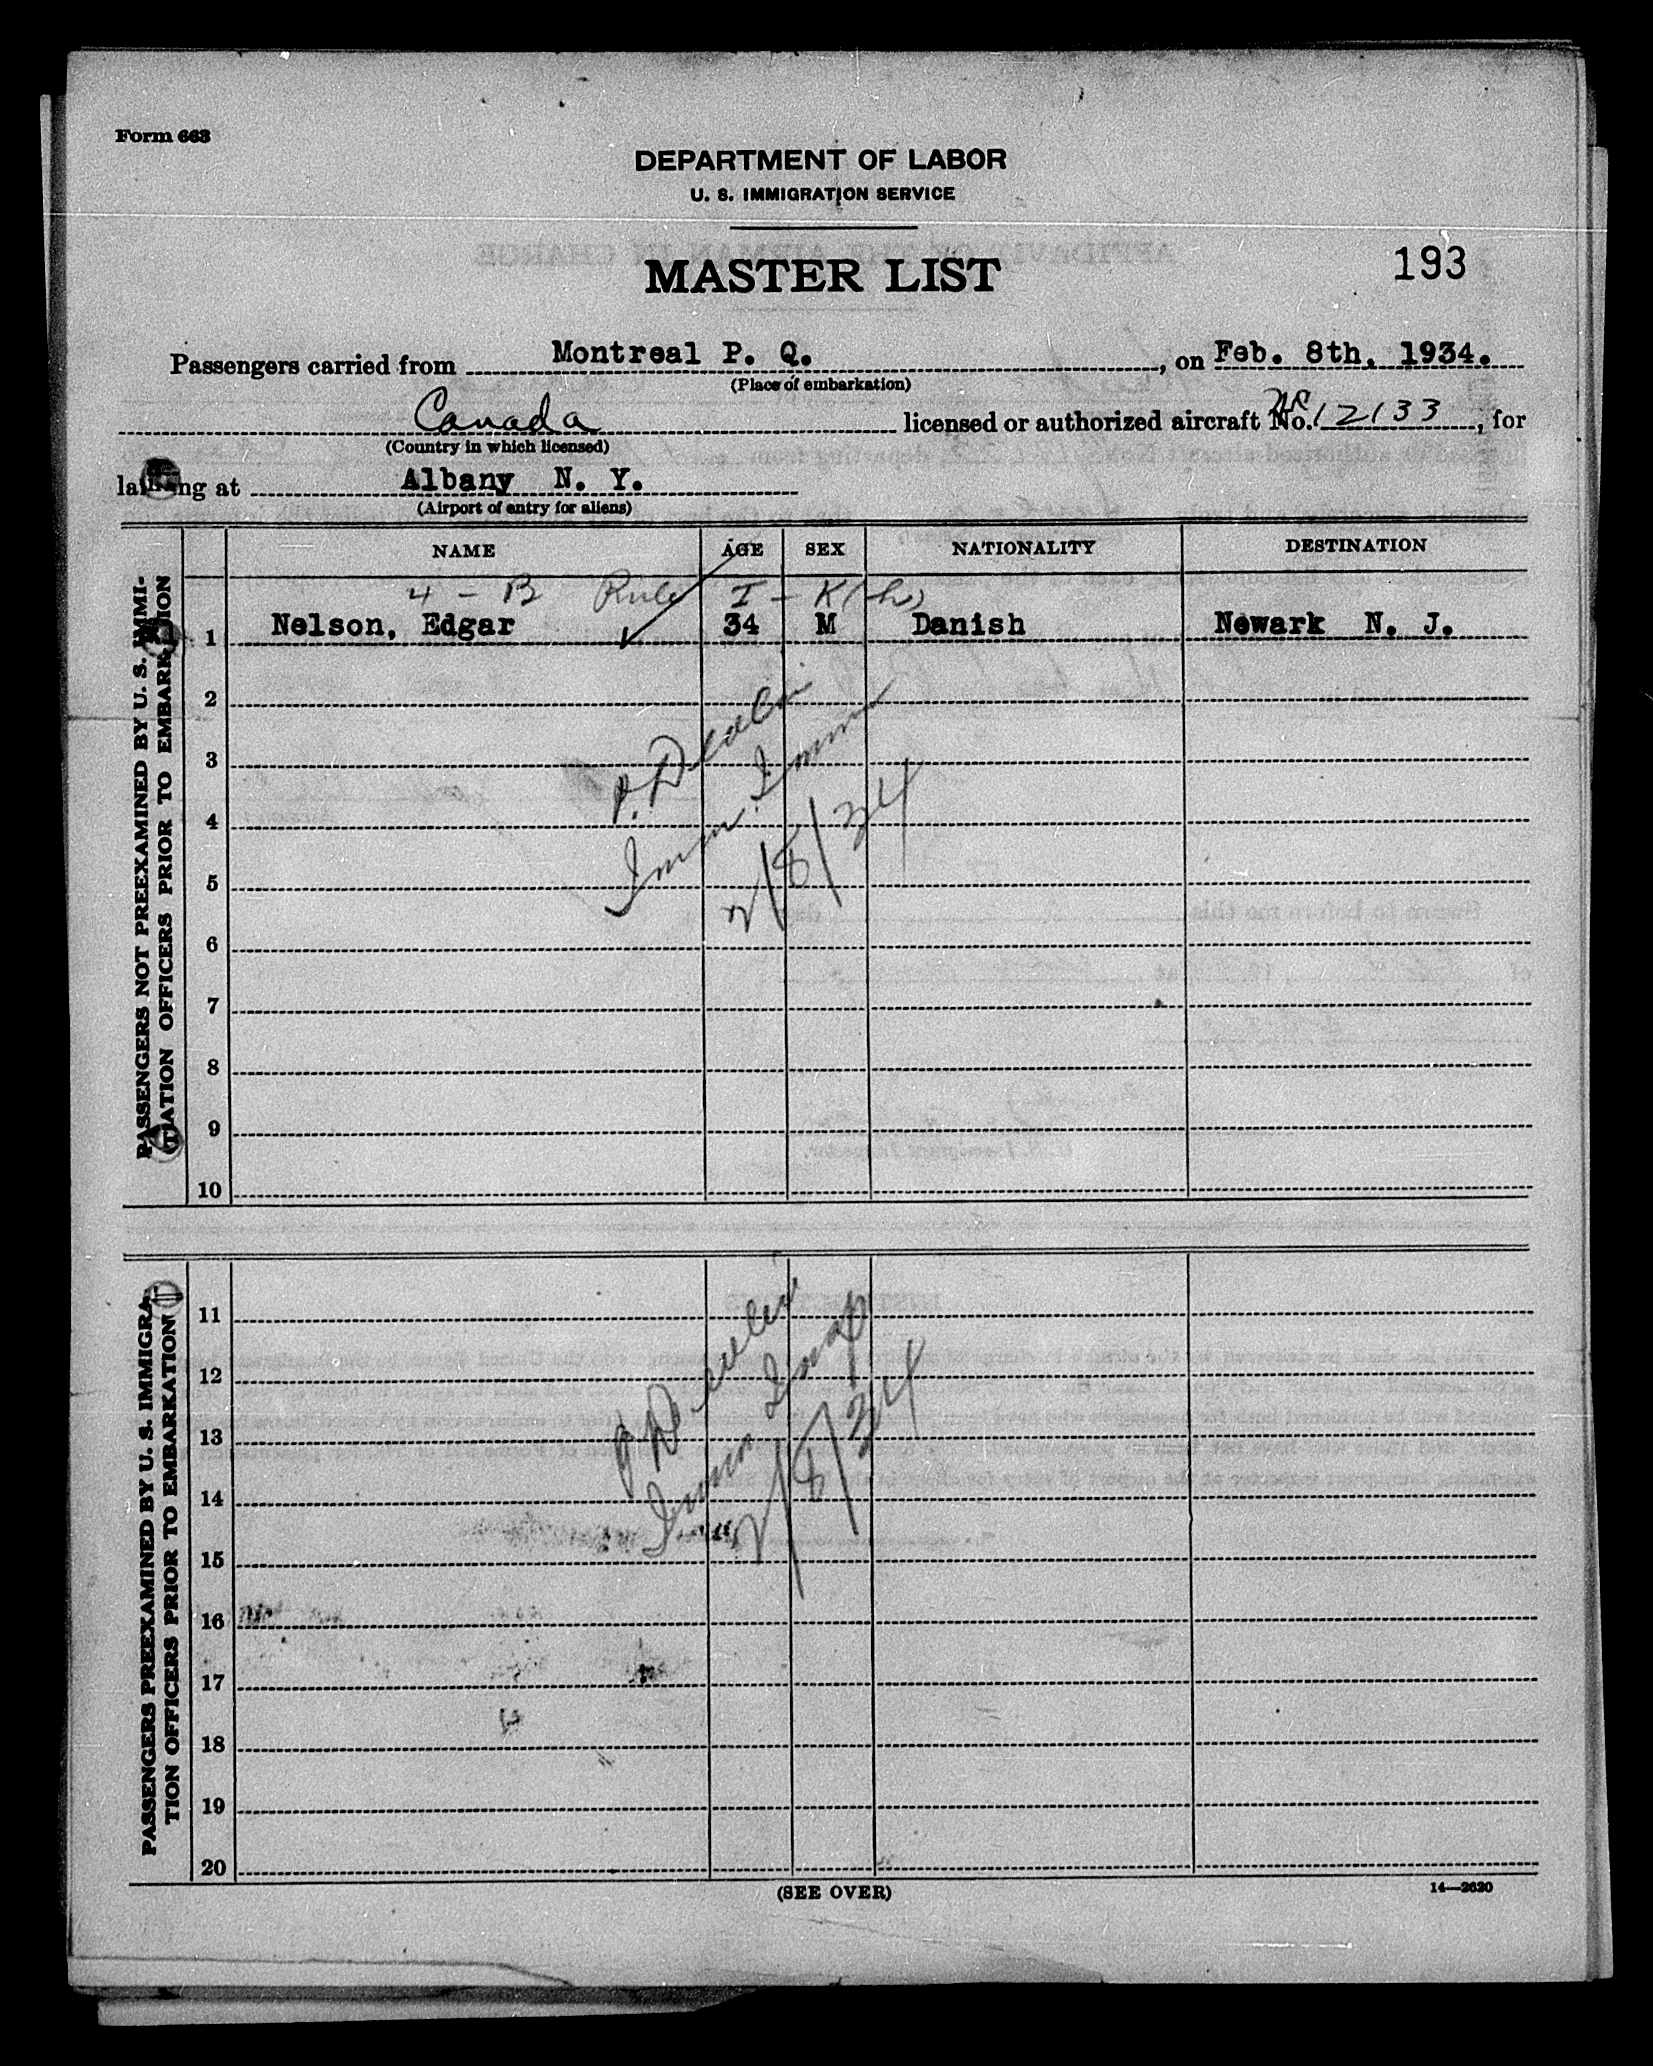 Form 663
DEPARTMENT OF LABOR
U. S. IMMIGRATION SERVICE
MASTER LIST
193
Passengers carried from Montreal P. Q., on Feb. 8th, 1934.
(Place of embarkation)
Canada licensed or authorized aircraft No. 12133, for
(Country in which licensed)
landing at Albany N. Y.
(Airport of entry for aliens)
NAME AGE SEX NATIONALITY DESTINATION
4 - B Rule I - K(h)
1 Nelson, Edgar 34 M Danish Newark N. J.
2
3
4
5
6
7
8
9
10
P. Devlin
Imm.
2/8/34
PASSENGERS NOT PREEXAMINED BY U. S. IMMI-
GRATION OFFICERS PRIOR TO EMBARKATION
11
12
13
14
15
16
17
18
19
20
P. Devlin
Imm Insp
2/8/34
PASSENGERS PREEXAMINED BY U. S. IMMIGRA-
TION OFFICERS PRIOR TO EMBARKATION
(SEE OVER)
14—2630